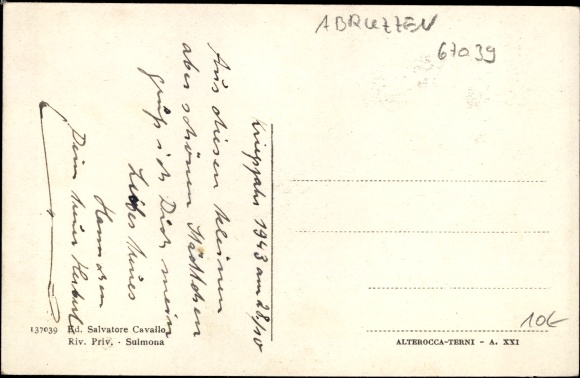 ABRUZZEN
67039
Kriegsjahr 1943 am 28/10
Aus diesen kleinen
aber schönen Städtchen
grüß ich Dich mein
Liebes
Hannchen
Dein Herbert
137039 Ed. Salvatore Cavallo
Riv. Priv. - Sulmona
10€
ALTEROCCA-TERNI - A. XXI